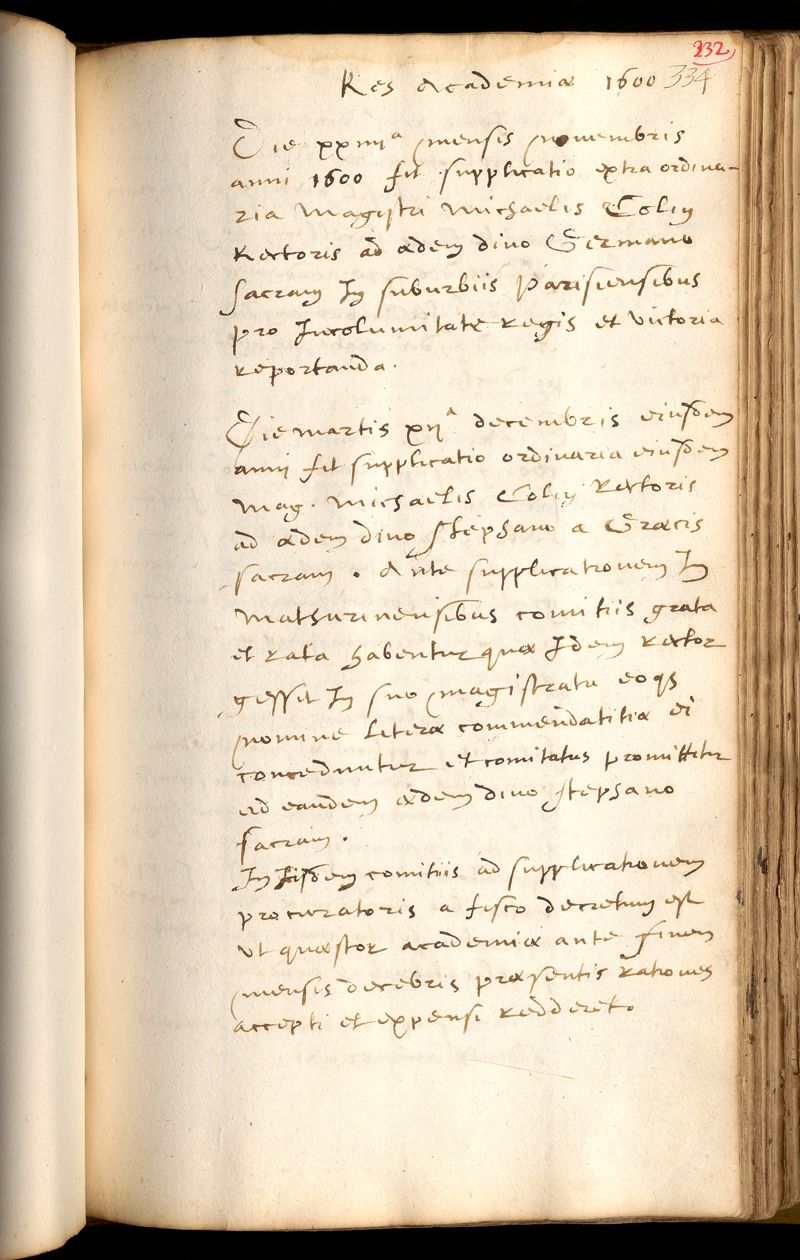 232
Res Academiæ 1600 334
Die xxiiiiᵃ mensis novembris
anni 1600 fit supplicatio extraordina-
ria Magistri Michaelis Colin
Rectoris ad ædem divo Germano
sacram In suburbiis Parisiensibus
pro Incolumitate regis et victoria
reportanda.
Die martis xijᵃ decembris eiusdem
annj fit supplicatio ordinaria eiusdem
Mag. Michaelis Colin Rectoris
ad ædem divo Stephano a Græcis
sacram. Ante supplicationem In
Mathurinensibus comitiis grata
et rata habentur quæ Idem rector
gessit In suo magistratu eoqȝ
nomine literæ commendatitiæ ei
conceduntur et comitatus promittitur
ad eandem ædem divo stephano
sacram.
In Iisdem comitiis ad supplicationem
procuratoris a fisco decretum est
ut quæstor academiæ ante finem
mensis decebris præsentis rationes
accepti et expensi redderet.